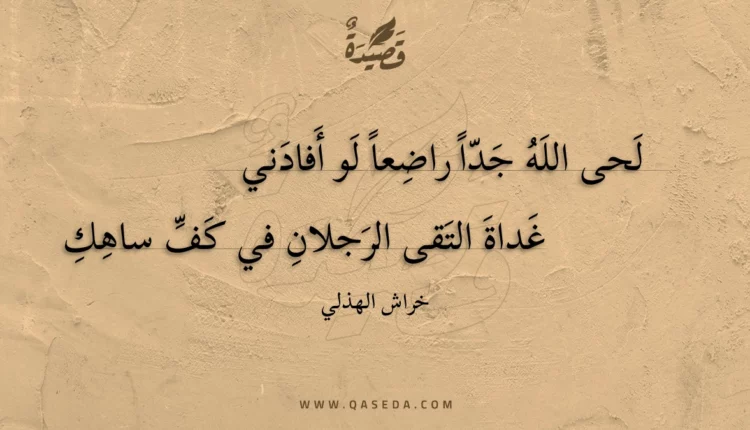 قَصِيدَةٌ
لَحى اللَهُ جَدّاً راضِعاً لَو أَفادَني
غَداةَ التَقى الرَجلانِ في كَفِّ ساهِكِ
خراش الهذلي
WWW.QASEDA.COM